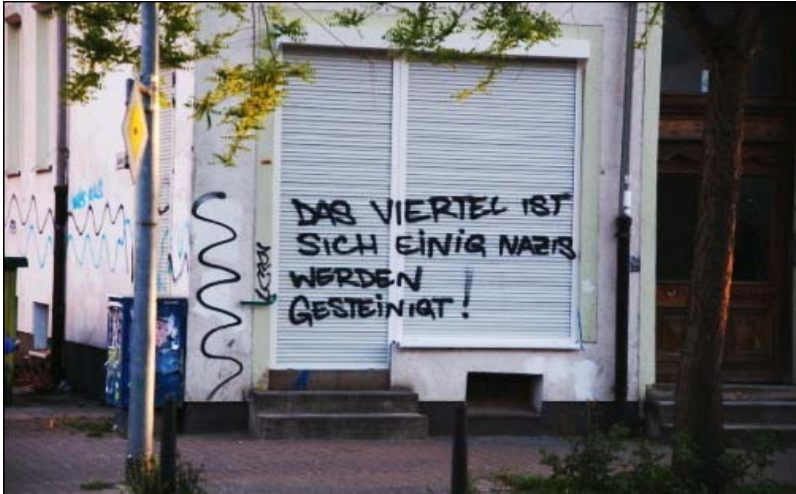 DAS VIERTEL IST
SICH EINIG NAZIS
WERDEN
GESTEINIGT!